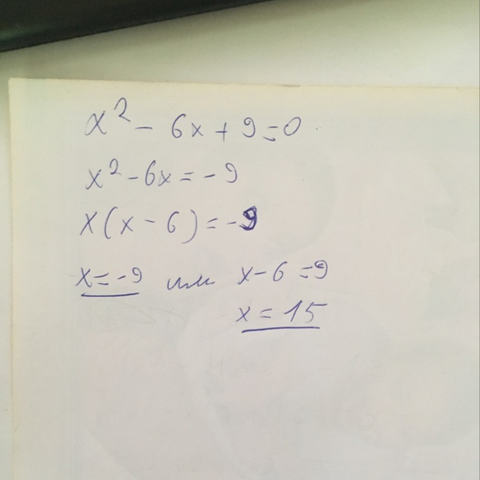 x² - 6x + 9 = 0
x² - 6x = -9
x(x - 6) = -9
x = -9 или x - 6 = 9
x = 15